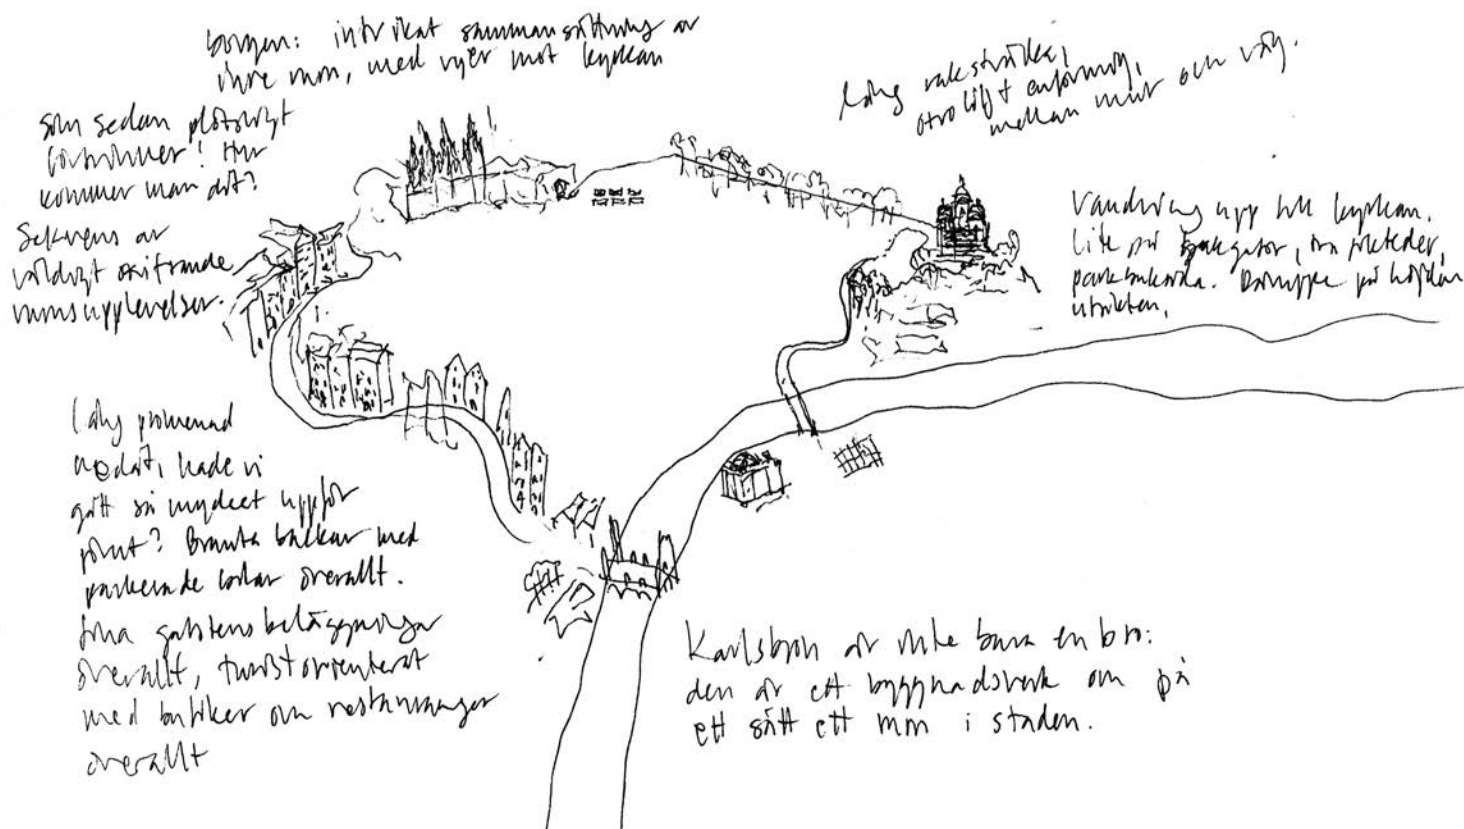 borgen: intrikat sammansättning av
inre rum, med vyer mot kyrkan
lång raksträcka,
otroligt enformig,
mellan mur och väg.
som sedan plötsligt
försvinner! Hur
kommer man dit?
Sekvens av
väldigt skiftande
rumsupplevelser.
Vandring upp till kyrkan.
Lite på gator, bra
Däruppe på höjden
utsikten.
Lång promenad
nedåt, hade vi
gått så mycket uppför
förut? Branta backar med
parkerade bilar överallt.
fina gatstensbeläggningar
överallt, turistorienterat
med butiker och restauranger
överallt
Karlsbron är inte bara en bro:
den är ett byggnadsverk och på
ett sätt ett rum i staden.